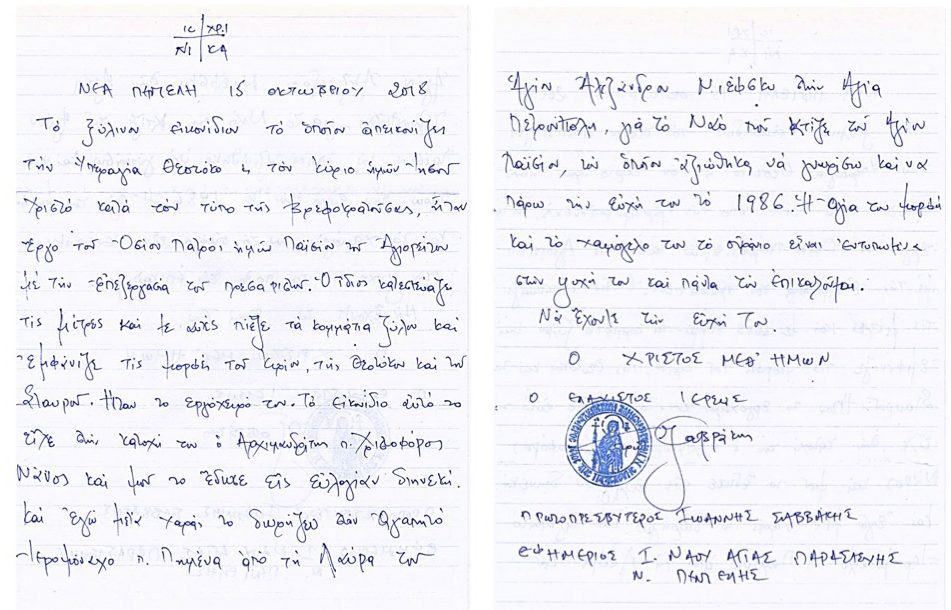 IC ΧΡ.Ι
ΝΙ ΚΑ
ΝΕΑ ΠΕΝΤΕΛΗ 15 ΟΚΤΩΒΡΙΟΥ 2018
Τὸ ξύλινον εἰκονίδιον τὸ ὁποῖον ἀπεικονίζει
τὴν Ὑπεραγία Θεοτόκο & τὸν Κύριο ἡμῶν Ἰησοῦ
Χριστὸ κατὰ τὸν τύπο τῆς Βρεφοκρατούσας, ἦταν
ἔργο τοῦ Ὁσίου Πατρὸς ἡμῶν Παϊσίου τοῦ Ἁγιορείτου
μὲ τὴν ἐπεξεργασία τοῦ πρεσαρίσματος. Ὁ ἴδιος κατεσκεύαζε
τὶς μήτρες καὶ μὲ αὐτὲς πίεζε τὰ κομμάτια ξύλου καὶ
ἐμφάνιζε τὶς μορφὲς τοῦ Κυρίου, τῆς Θεοτόκου καὶ τοῦ
Σταυροῦ. Ἦταν τὸ ἐργόχειρό του. Τὸ εἰκονίδιο αὐτὸ τὸ
εἶχε στὴν κατοχή του ὁ Ἀρχιμανδρίτης π. Χριστοφόρος
καὶ μοῦ τὸ ἔδωκε εἰς εὐλογίαν διηνεκῆ.
Καὶ ἐγὼ μετὰ χαρᾶς τὸ δωρίζω στὸν ἀγαπητὸ
Ἱερομόναχο π. Ποιμένα ἀπὸ τὴ Λαύρα τοῦ
Ἁγίου Ἀλεξάνδρου Νιέφσκυ στὴν Ἁγία
Πετρούπολη, γιὰ τὸ Ναὸ ποὺ κτίζει τοῦ Ἁγίου
Παϊσίου, τὸν ὁποῖον ἀξιώθηκα νὰ γνωρίσω καὶ νὰ
πάρω τὴν εὐχή του τὸ 1986. Ἡ ἁγία του μορφὴ
καὶ τὸ χαμόγελό του τὸ οὐράνιο εἶναι ἐντυπωμένα
στὴν ψυχή του καὶ πάντα τὸν ἐπικαλοῦμαι.
Νὰ ἔχουμε τὴν εὐχή Του.
Ο ΧΡΙΣΤΟΣ ΜΕΘ' ΗΜΩΝ
Ο ΕΛΑΧΙΣΤΟΣ ΙΕΡΕΥΣ
ΠΡΩΤΟΠΡΕΣΒΥΤΕΡΟΣ ΙΩΑΝΝΗΣ ΣΑΒΒΑΚΗΣ
ΕΦΗΜΕΡΙΟΣ Ι. ΝΑΟΥ ΑΓΙΑΣ ΠΑΡΑΣΚΕΥΗΣ
Ν. ΠΕΝΤΕΛΗΣ